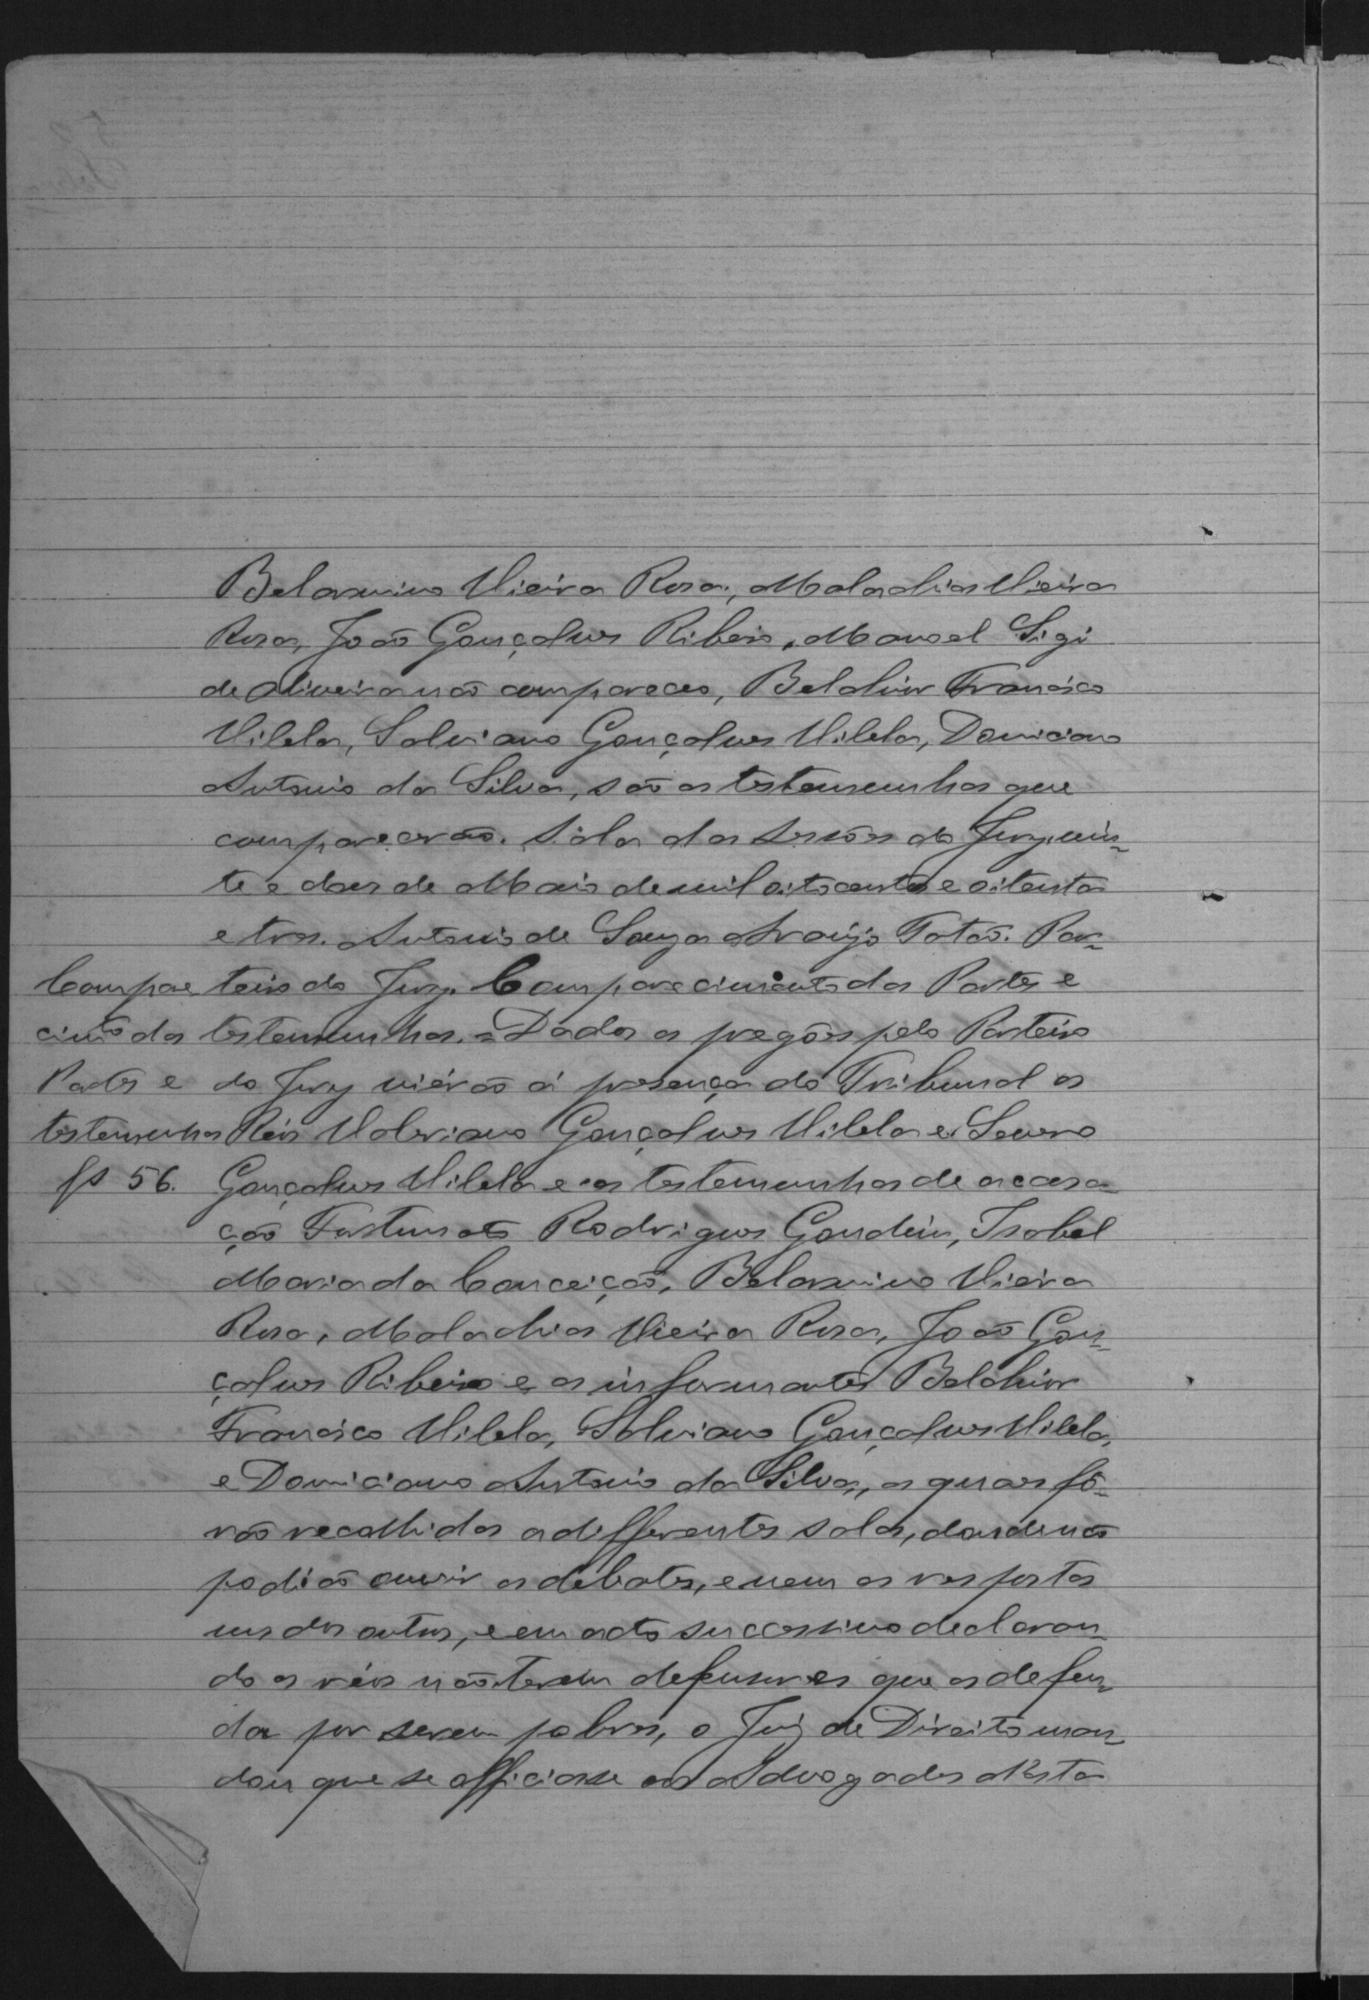 Belarmino Vieira Rosa, Malachias Vieira
Rosa, João Gonçalves Ribeiro, Manoel Gigi
de Oliveira não compareceo, Belchior Francisco
Vilela, Salviano Gonçalves Vilela, Domiciano
Antonio da Silva, são as testemunhas que
comparecerão. Sala das Sessões do Jury, vin-
te e dois de Maio de mil oitocentos e oitenta
e tres. Antonio de Souza Araujo Totão. Por-
teiro do Jury. Comparecimento das Partes e
testemunhas. = Dados os pregões pelo Porteiro
do Jury viérão á presença do Tribunal os
Réos Valeriano Gonçalves Vilela e Severo
Gonçalves Vilela e as testemunhas de accusa-
ção Fortunato Rodrigues Gondim, Isabel
Maria da Conceição, Belarmino Vieira
Rosa, Malachias Vieira Rosa, João Gon-
çalves Ribeiro e os informantes Belchior
Francisco Vilela, Salviano Gonçalves Vilela,
e Domiciano Antonio da Silva, os quaes fô-
rão recolhidos a differentes salas, donde não
podião ouvir os debates, e nem as respostas
uns dos outros, e em acto successivo declaran-
do os réos não terem defensores que os defen-
da por serem pobres, o Juiz de Direito man-
dou que se officiasse aos Advogados desta
Compare
cimto das
Partes e
testemunhas
fs 56.